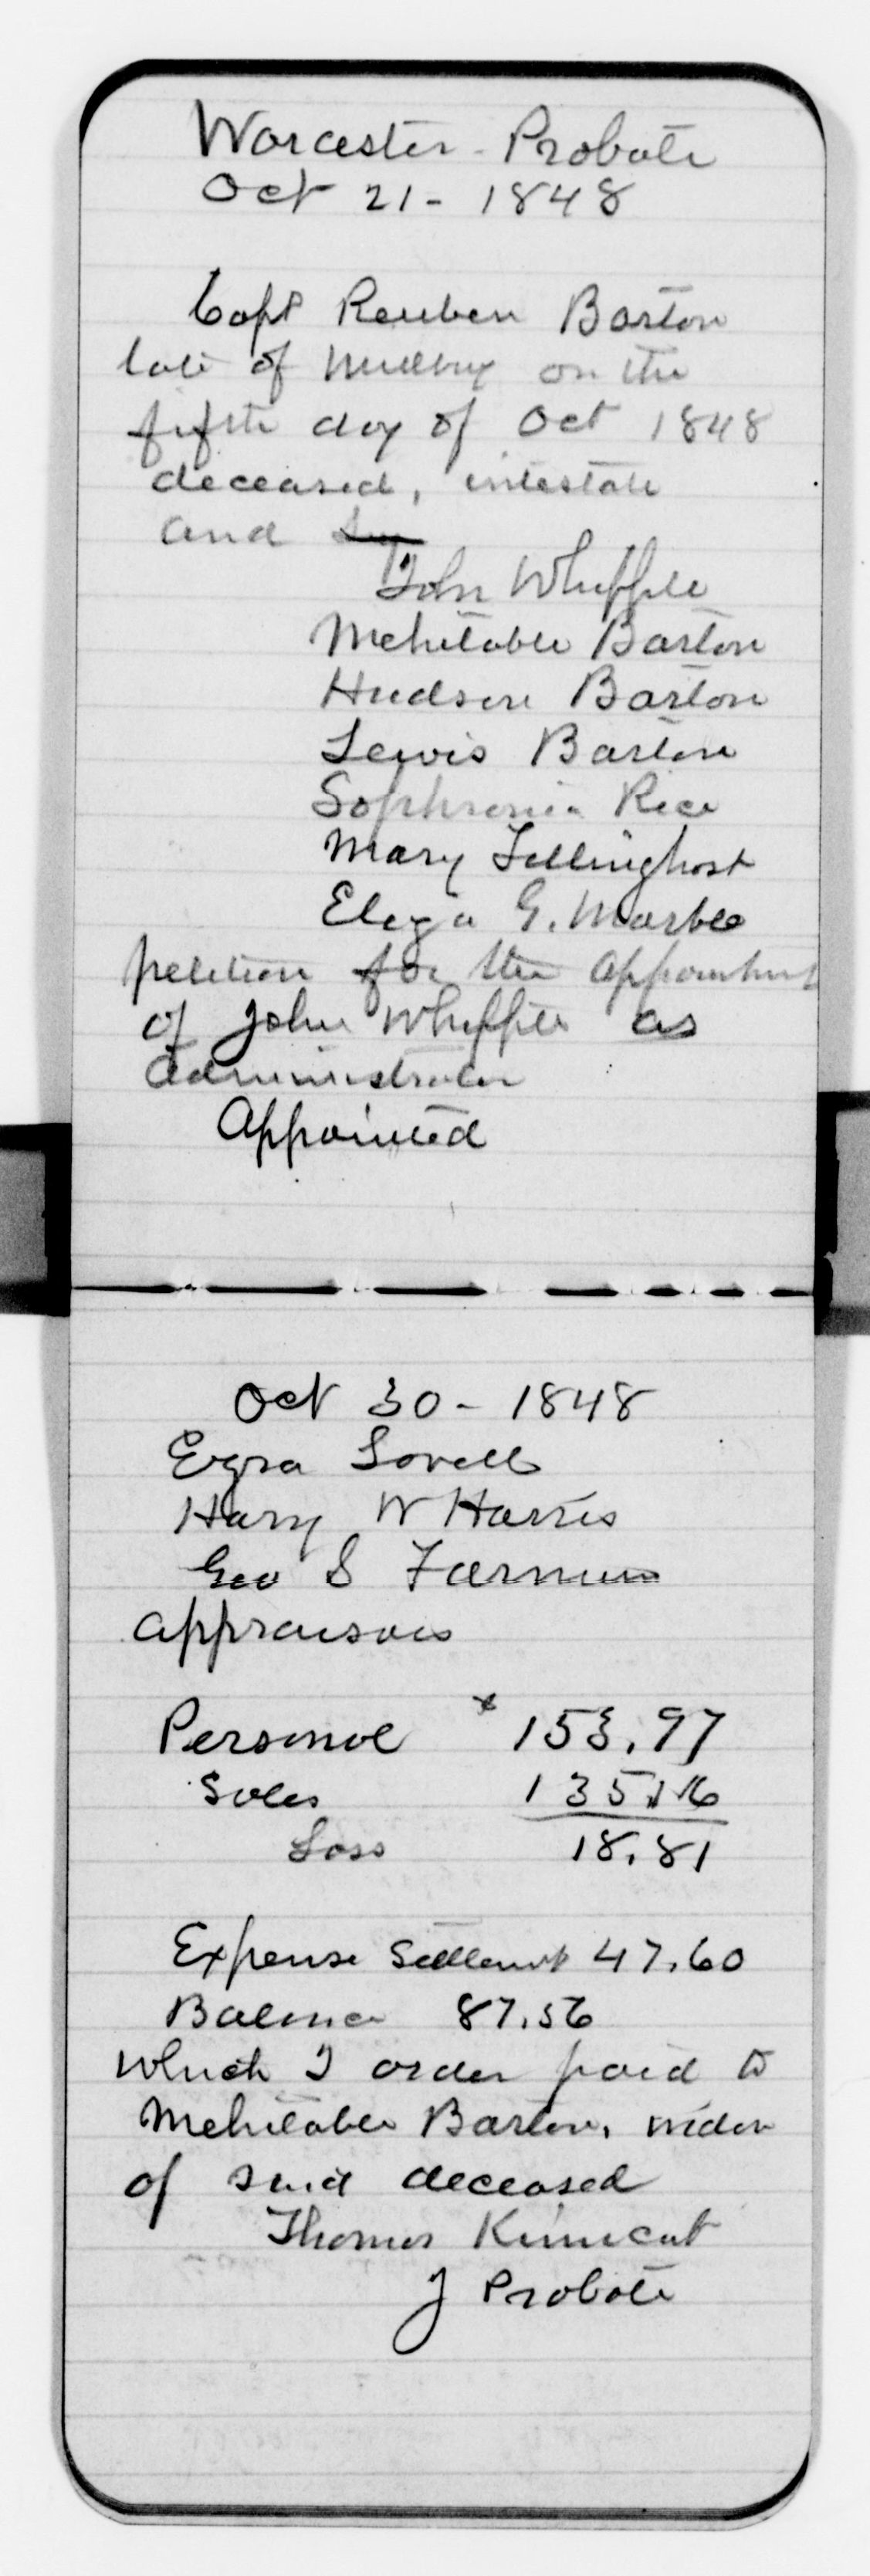 Worcester - Probate
Oct 21 - 1848
Capt Reuben Barton
late of Millbury on the
fifth day of Oct 1848
deceased, intestate
and
John Whipple
Mehitable Barton
Hudson Barton
Lewis Barton
Sophronia Rice
Mary Tillinghast
Eliza G. Marble
petition for the appointment
of John Whipple as
administrator
Appointed
Oct 30 - 1848
Ezra Lovell
Harry W Harris
Geo S Farnum
appraisors
Personal 153.97
Sales 135.16
Loss 18.81
Expense Settlemt 47.60
Balance 87.56
which I order paid to
Mehitable Barton, widow
of said deceased
Thomas Kinnicut
J Probate